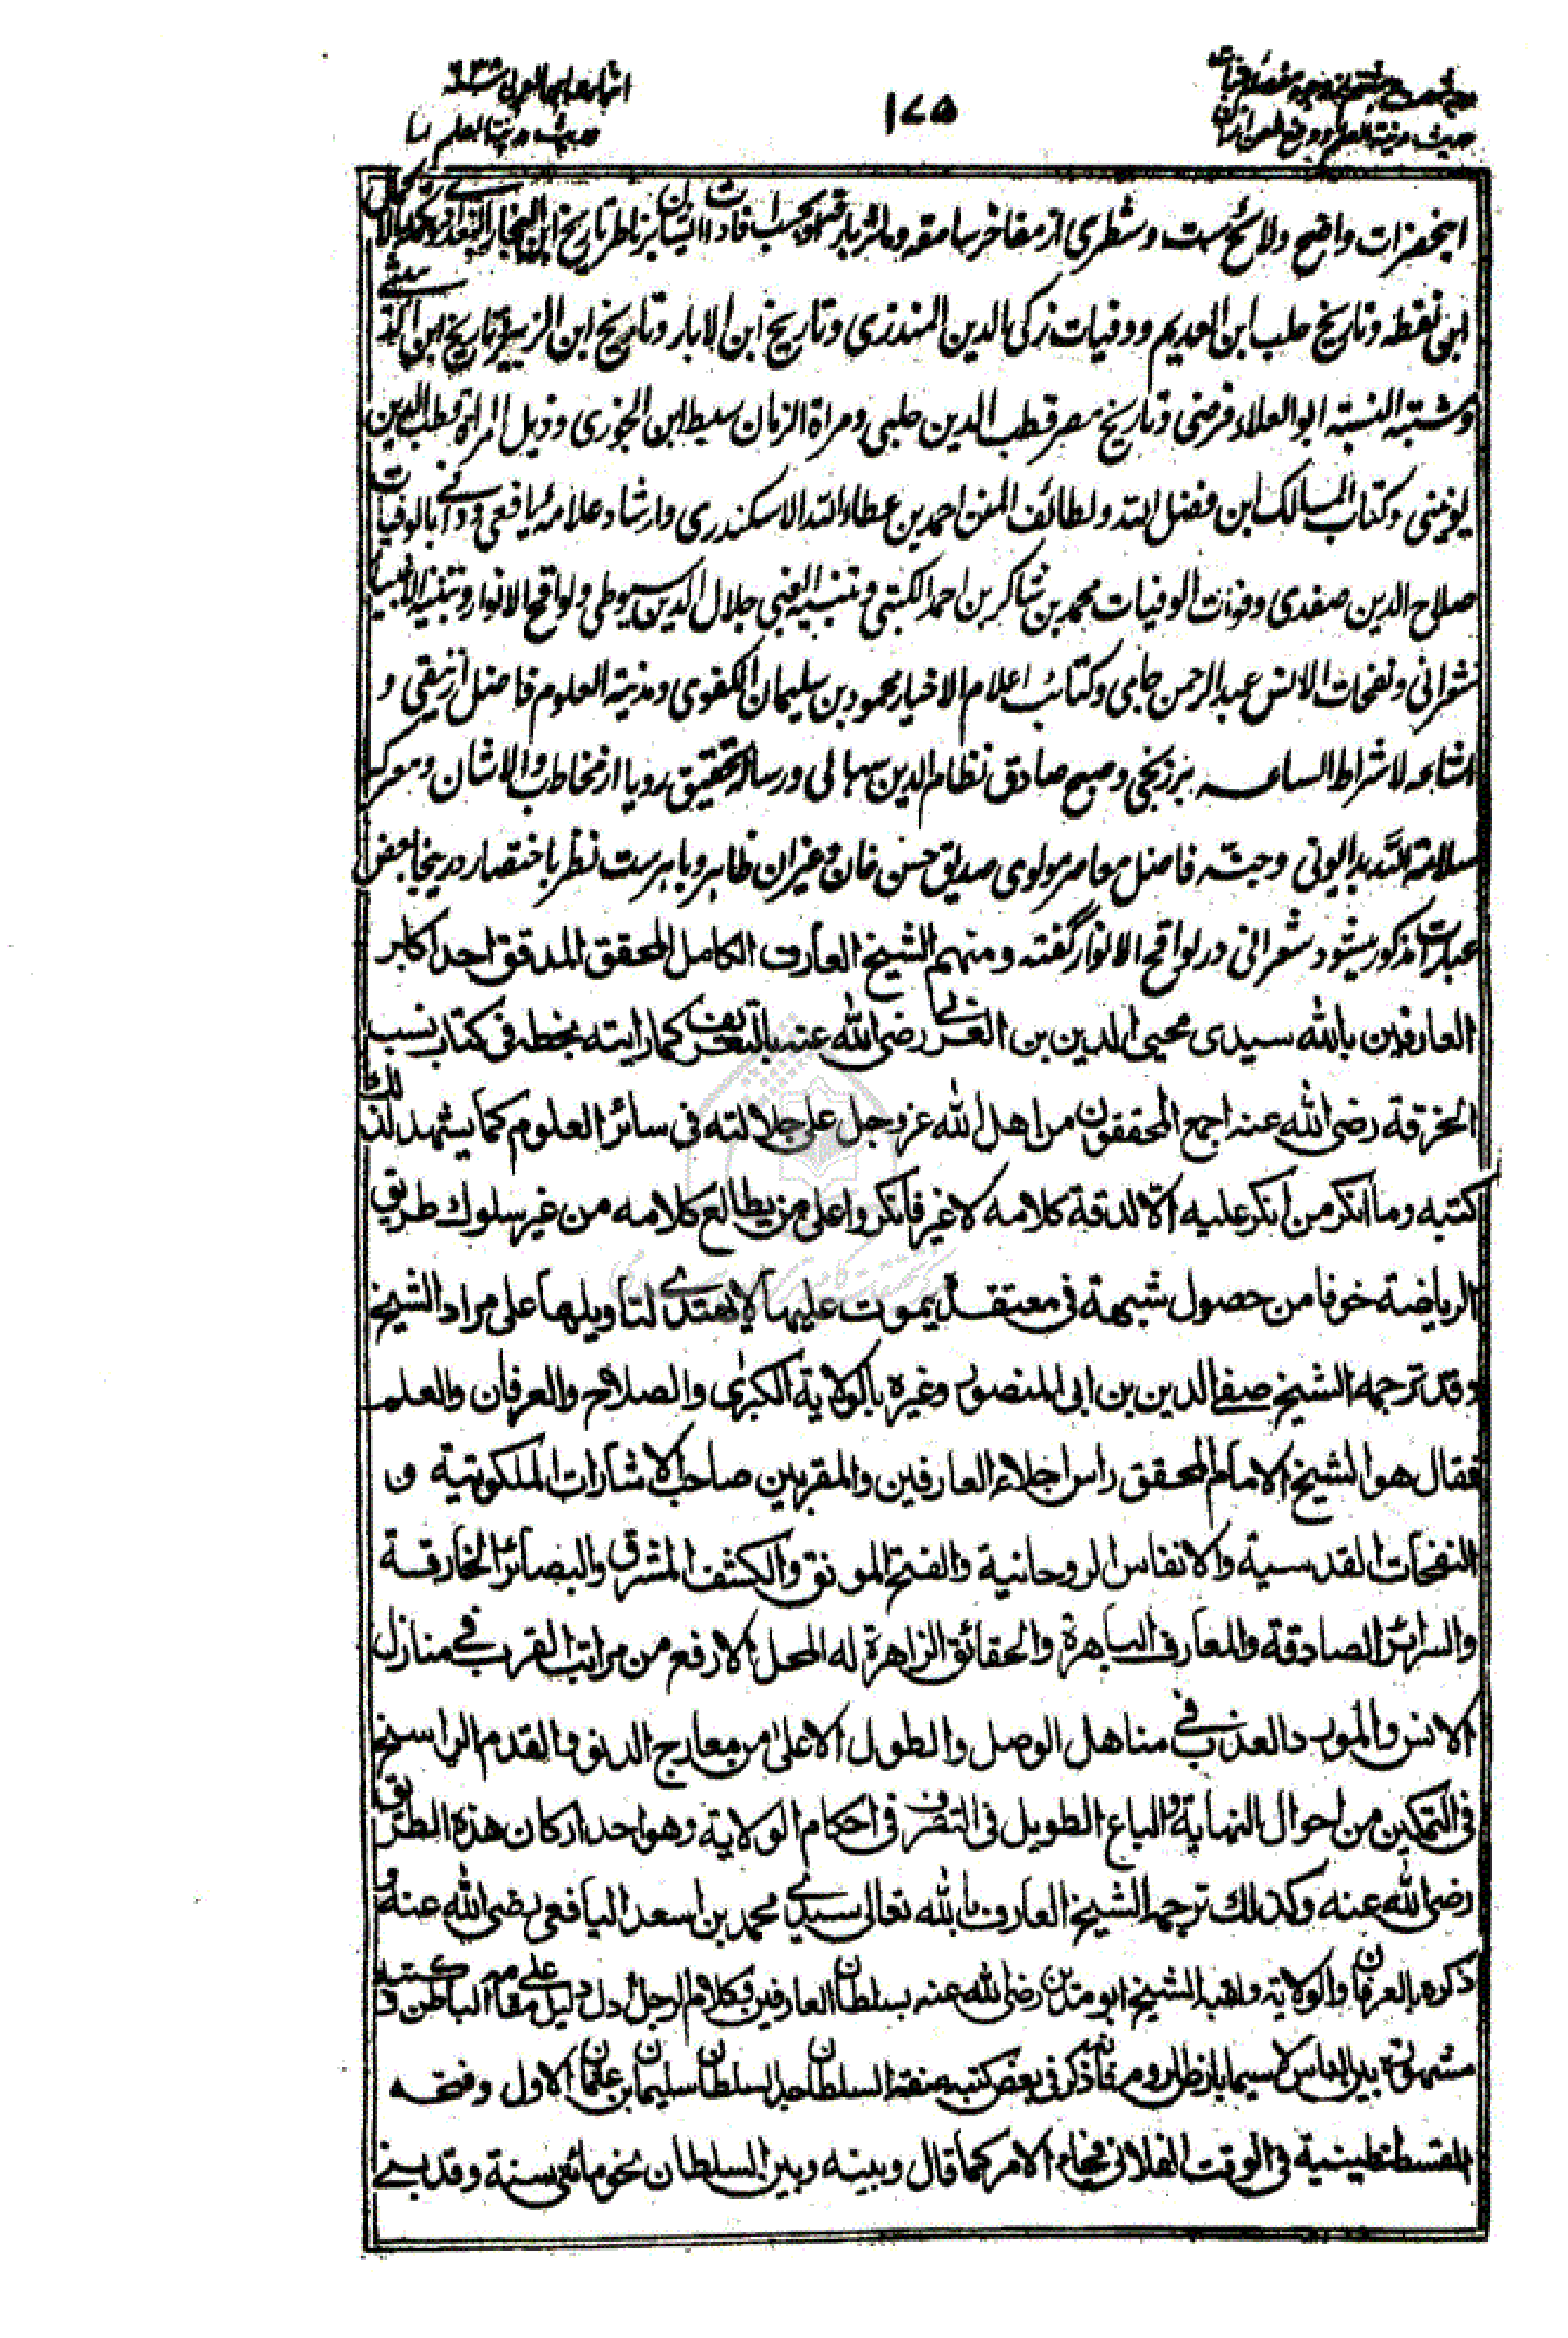 ١٧٥
حديث مدينة العلم
حديث مدينة العلم را
اینحضرات واضح ولائح ست وشطری از مفاخر سامقه ومآثر بارقه او بحسب افادات ایشان بر ناظر تاریخ ابن النجار البغدادی
ابن نقطه وتاریخ حلب ابن العدیم ووفیات زکی الدین المنذری وتاریخ ابن الابار وتاریخ ابن الزبیر وتاریخ ابن
ومشتبه النسبة ابو العلاء فرضی وتاریخ مصر قطب الدین حلبی ومراة الزمان سبط ابن الجوزی وذیل المراة قطب الدین
یونینی وکتاب المسالک ابن فضل الله ولطائف المنن احمد بن عطاء الله الاسکندری وارشاد علامه یافعی ووافی بالوفیات
صلاح الدین صفدی وفوات الوفیات محمد بن شاکر بن احمد الکتبی وتنبیه الغبی جلال الدین سیوطی ولواقح الانوار وتنبیه الاغبیا
شعرانی ونفحات الانس عبد الرحمن جامی وکتائب اعلام الاخیار محمود بن سلیمان الکفوی ومدینة العلوم فاضل ازنیقی و
اشاعه لاشراط الساعه برزنجی وصبح صادق نظام الدین سهالی ورساله تحقیق رویا از مخاطب والاشان ومعرکه
سلامة الله بدایونی وجنّه فاضل معاصر مولوی صدیق حسن خان وغیر ان ظاهر وباهرست نظر باختصار درینجا بعض
عبارات مذکور میشود شعرانی در لواقح الانوار گفته ومنهم الشیخ العارف الکامل المحقق المدقق احد اکابر
العارفین بالله سیدی محیی الدین بن العربی رضی الله عنه بالتعریف کما رایته بخطه فی کتاب نسب
الخرقة رضی الله عنه اجمع المحققون من اهل الله عز وجل علی جلالته فی سائر العلوم کما یشهد لذلک
کتبه وما انکر من انکر علیه الا لدقة کلامه لا غیر فانکروا علی من یطالع کلامه من غیر سلوک طریق
الریاضة خوفا من حصول شبهة فی معتقده یموت علیها لا یهتدی لتاویلها علی مراد الشیخ
وقد ترجمه الشیخ صفی الدین بن ابی المنصور وغیره بالولایة الکبری والصلاح والعرفان والعلم
فقال هو الشیخ الامام المحقق راس اجلاء العارفین والمقربین صاحب الاشارات الملکوتیة و
النفحات القدسیة والانفاس الروحانیة والفتح المونق والکشف المشرق والبصائر الخارقة
والسرائر الصادقة والمعارف الباهرة والحقائق الزاهرة له المحل الارفع من مراتب القرب فی منازل
الانس والمورد العذب فی مناهل الوصل والطول الاعلی من معارج الدنو والقدم الراسخ
فی التمکین من احوال النهایة والباع الطویل فی التصرف فی احکام الولایة وهو احد ارکان هذه الطریق
رضی الله عنه وکذلک ترجمه الشیخ العارف بالله تعالی سیدی محمد بن اسعد الیافعی رضی الله عنه و
ذکره بالعرفان والولایة ولقبه الشیخ ابو مدین رضی الله عنه بسلطان العارفین وکلام الرجل ادل دلیل علی مقامه الباطن وکتبه
مشهورة بین الناس لا سیما بارض الروم فانه ذکر فی بعض کتبه صفة السلطان جد السلطان سلیمان بن عثمان الاول وفتحه
القسطنطینیة فی الوقت الفلانی فجاء الامر کما قال وبینه وبین السلطان نحو مائتی سنة وقد بنی